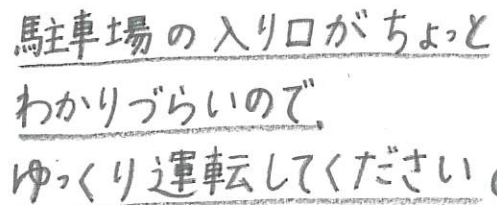 駐車場の入り口がちょっと
わかりづらいので、
ゆっくり運転してください。